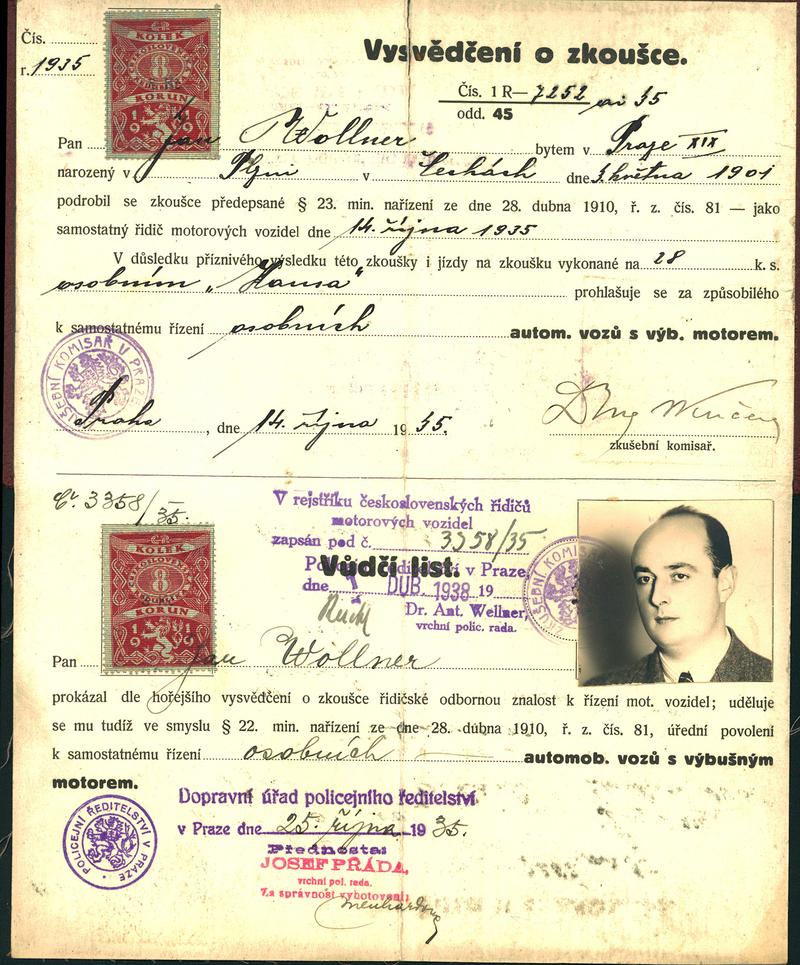 Čís.
r. 1935
KOLEK
8
KORUN
1919
Vysvědčení o zkoušce.
Čís. 1 R— 7252 ai 35
odd. 45
Pan Jan Wollner bytem v Praze XIX
narozený v Plzni v Čechách dne 3. května 1901
podrobil se zkoušce předepsané § 23. min. nařízení ze dne 28. dubna 1910, ř. z. čís. 81 — jako
samostatný řidič motorových vozidel dne 14. října 1935
V důsledku příznivého výsledku této zkoušky i jízdy na zkoušku vykonané na 28 k. s.
osobním „Hansa“ prohlašuje se za způsobilého
k samostatnému řízení osobních autom. vozů s výb. motorem.
ZKUŠEBNÍ KOMISAŘ V PRAZE
Praha, dne 14. října 1935.
zkušební komisař.
Č. 3358/35.
V rejstříku československých řidičů
motorových vozidel
zapsán pod č. 3358/35
Vůdčí list.
v Praze,
dne 1 DUB. 1938 19
Dr. Ant. Wellner,
vrchní polic. rada.
ZKUŠEBNÍ KOMISAŘ
KOLEK
8
KORUN
1919
Pan Jan Wollner
prokázal dle hořejšího vysvědčení o zkoušce řidičské odbornou znalost k řízení mot. vozidel; uděluje
se mu tudíž ve smyslu § 22. min. nařízení ze dne 28. dubna 1910, ř. z. čís. 81, úřední povolení
k samostatnému řízení osobních automob. vozů s výbušným
motorem.
POLICEJNÍ ŘEDITELSTVÍ V PRAZE
Dopravní úřad policejního ředitelství
v Praze dne 25. října 1935.
Přednosta:
JOSEF PŘÁDA,
vrchní pol. rada.
Za správnost vyhotovení: